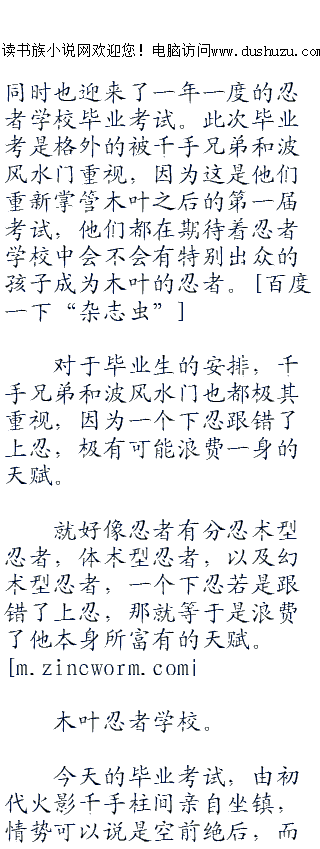 读书族小说网欢迎您！电脑访问www.dushuzu.com
同时也迎来了一年一度的忍
者学校毕业考试。此次毕业
考是格外的被千手兄弟和波
风水门重视，因为这是他们
重新掌管木叶之后的第一届
考试，他们都在期待着忍者
学校中会不会有特别出众的
孩子成为木叶的忍者。[百度
一下“杂志虫”]
对于毕业生的安排，千
手兄弟和波风水门也都极其
重视，因为一个下忍跟错了
上忍，极有可能浪费一身的
天赋。
就好像忍者有分忍术型
忍者，体术型忍者，以及幻
术型忍者，一个下忍若是跟
错了上忍，那就等于是浪费
了他本身所富有的天赋。
[m.zincworm.com|
木叶忍者学校。
今天的毕业考试，由初
代火影千手柱间亲自坐镇，
情势可以说是空前绝后，而